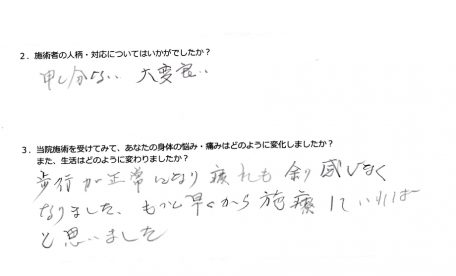 2．施術者の人柄・対応についてはいかがでしたか？
申し分ない 大変良い
3．当院施術を受けてみて、あなたの身体の悩み・痛みはどのように変化しましたか？
また、生活はどのように変わりましたか？
歩行が正常になり疲れも余り感じなく
なりました、もっと早くから施療していれば
と思いました